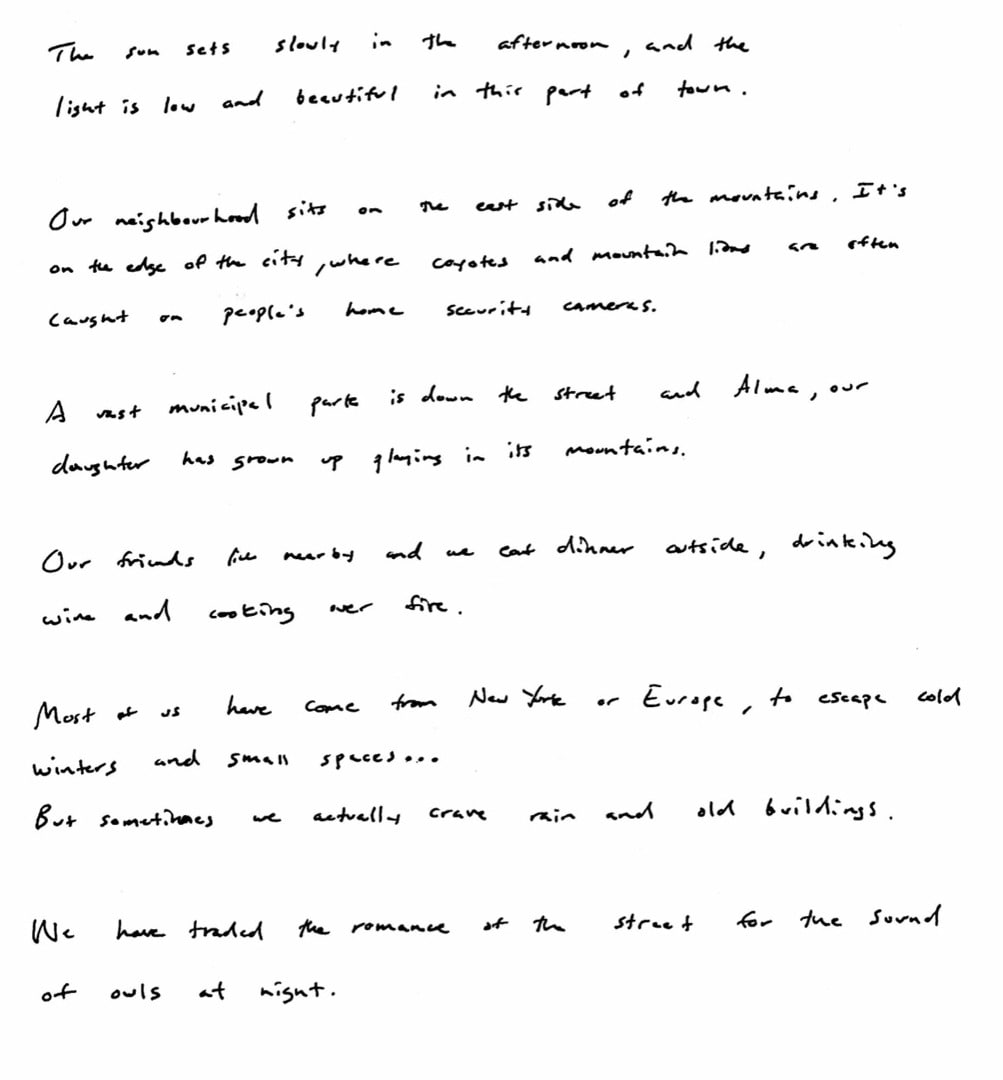 The sun sets slowly in the afternoon, and the
light is low and beautiful in this part of town.
Our neighbourhood sits on the east side of the mountains. It's
on the edge of the city, where coyotes and mountain lions are often
caught on people's home security cameras.
A vast municipal park is down the street and Alma, our
daughter has grown up playing in its mountains.
Our friends live nearby and we eat dinner outside, drinking
wine and cooking over fire.
Most of us have come from New York or Europe, to escape cold
winters and small spaces...
But sometimes we actually crave rain and old buildings.
We have traded the romance of the street for the sound
of owls at night.